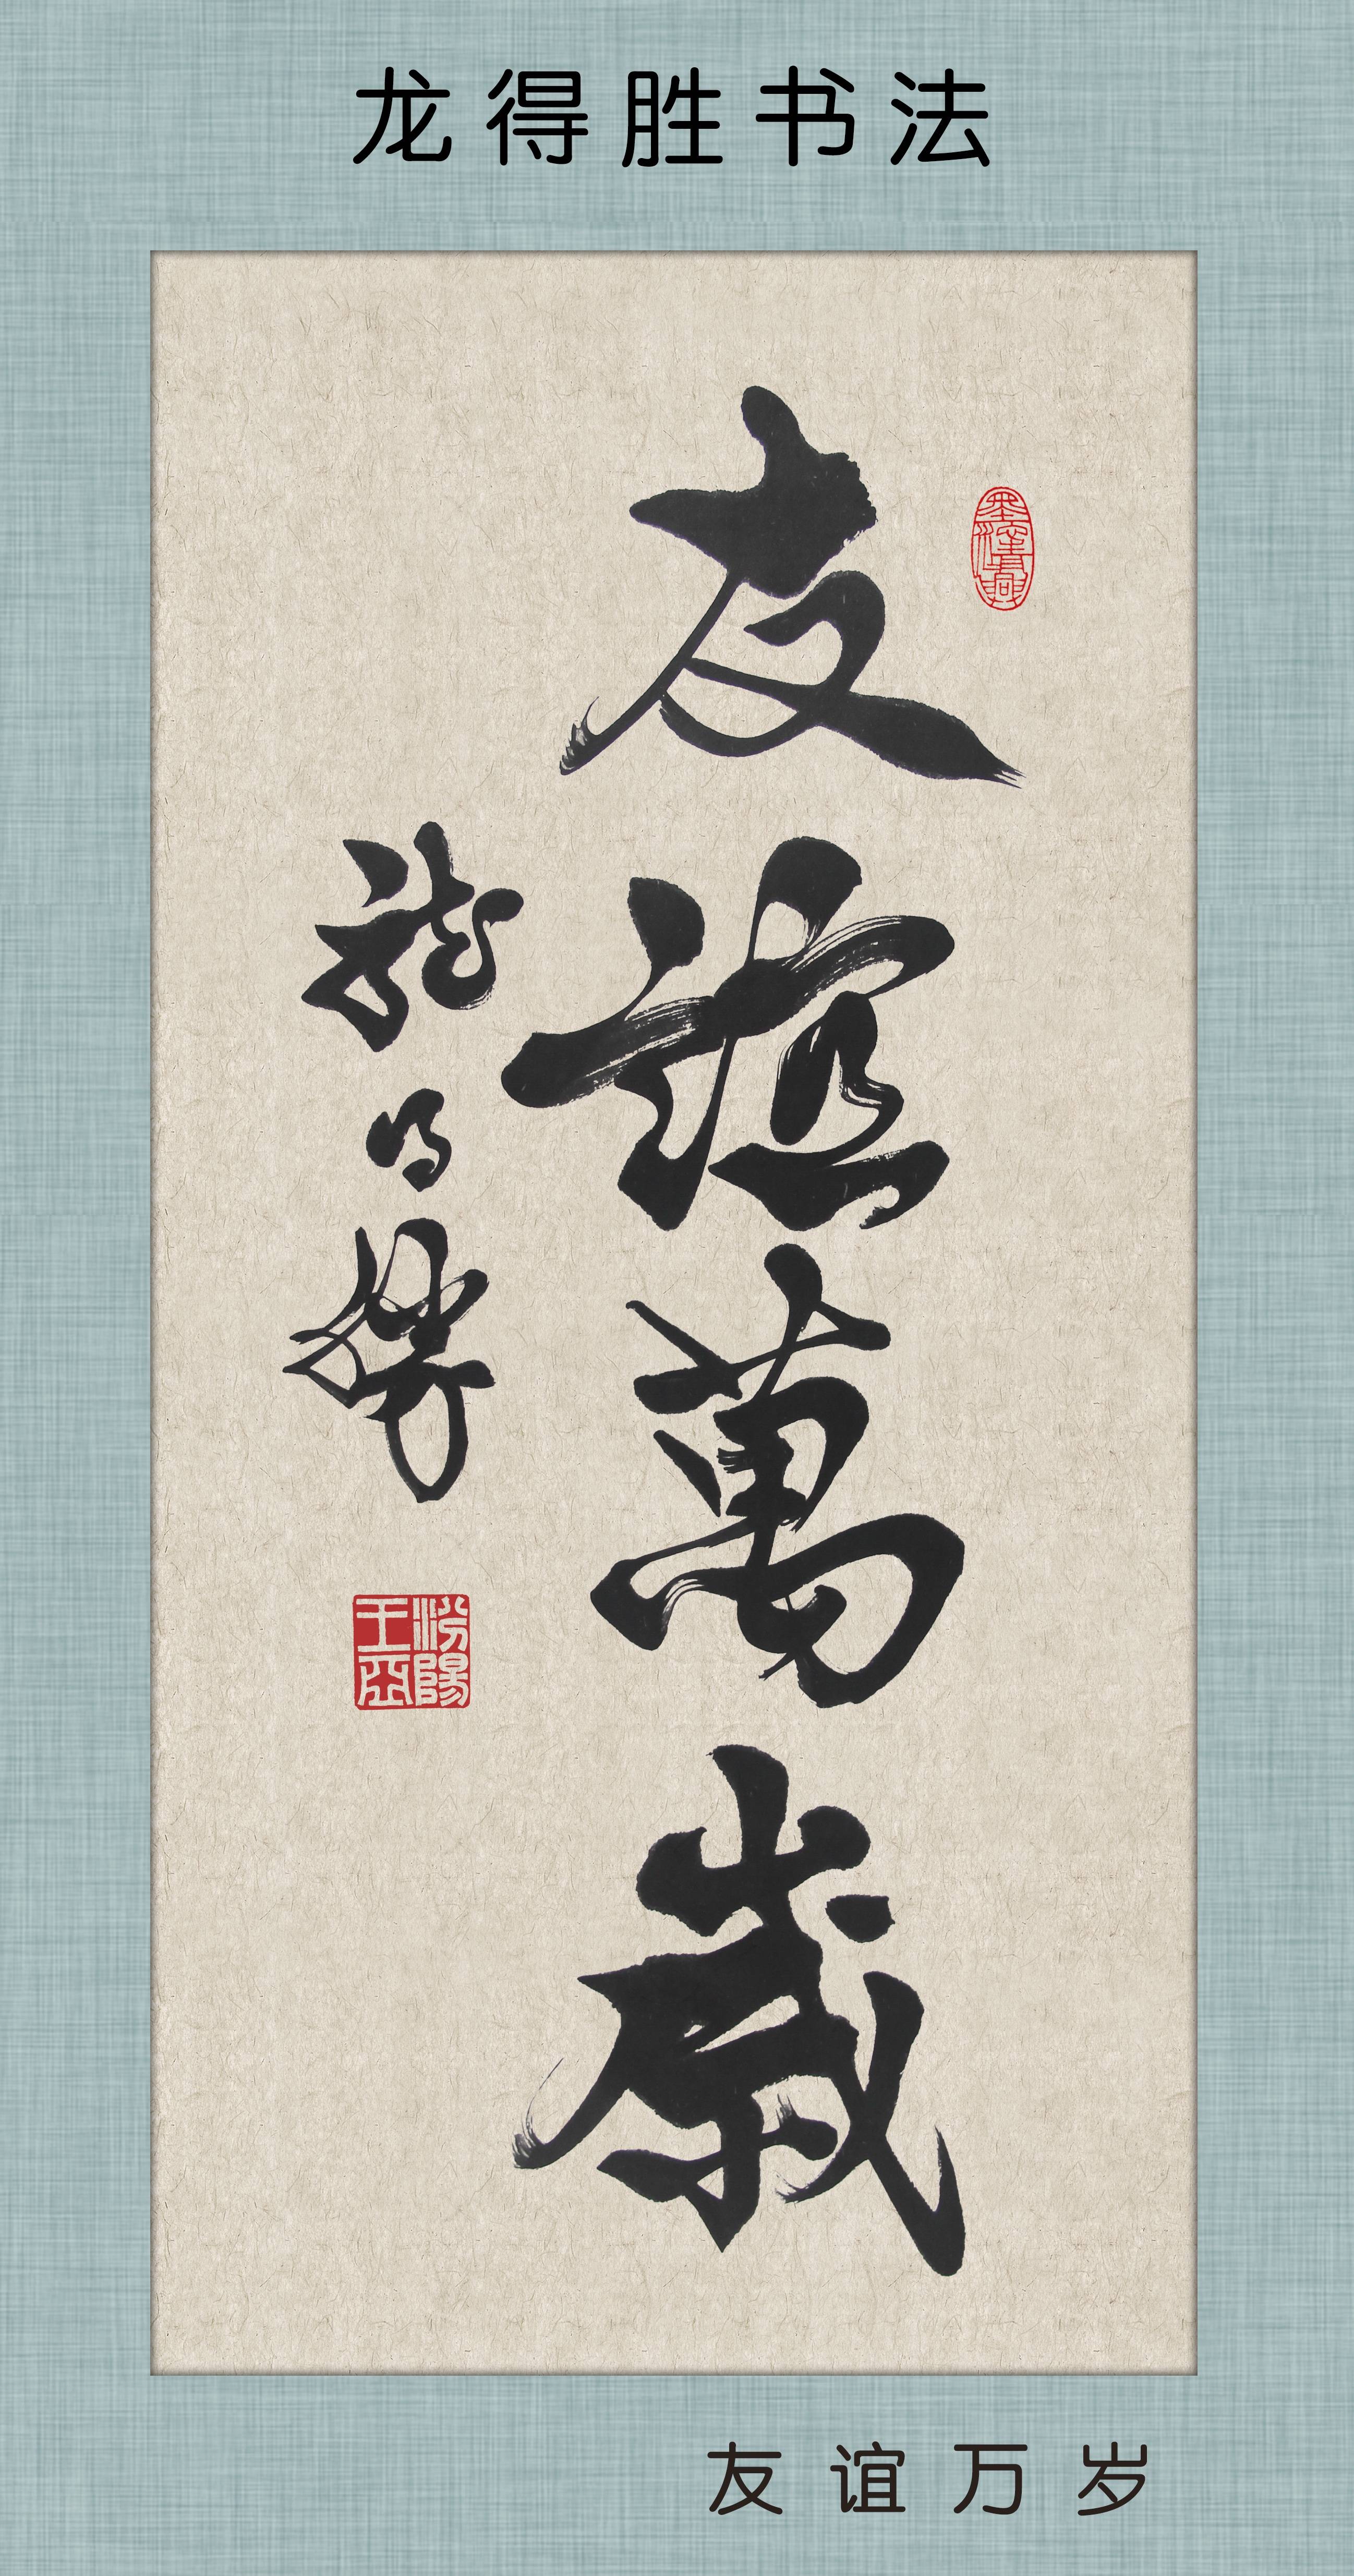 龙得胜书法
友誼萬歲
龍得勝
汾陽王氏
友谊万岁